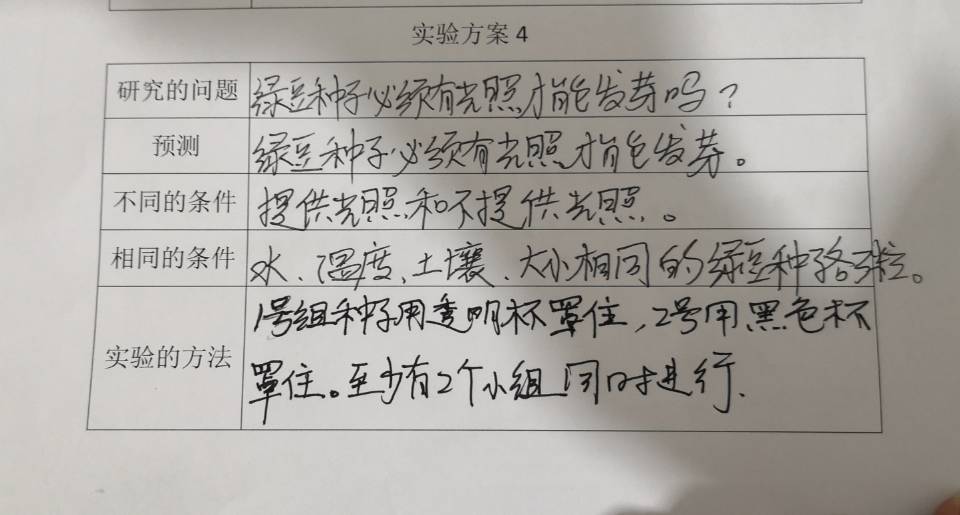 实验方案 4
研究的问题 绿豆种子必须有光照才能发芽吗？
预测 绿豆种子必须有光照才能发芽。
不同的条件 提供光照和不提供光照。
相同的条件 水、温度、土壤、大小相同的绿豆种子各3粒。
实验的方法 1号组种子用透明杯罩住，2号用黑色杯
罩住。至少有2个小组同时进行.